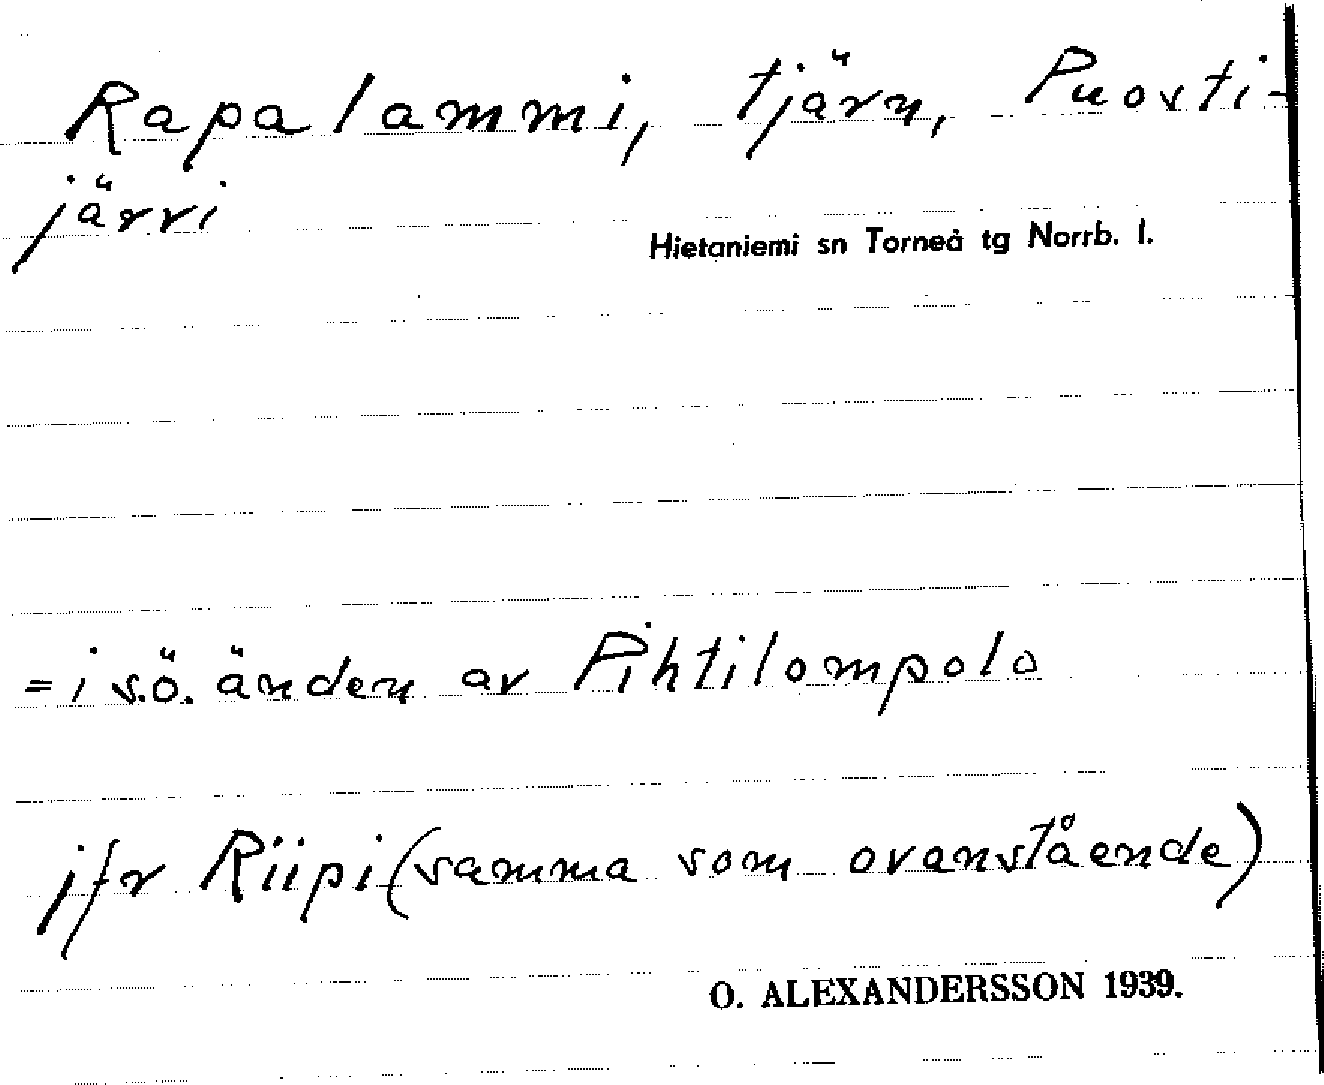 Rapalammi, tjärn, Puosti-
järvi
Hietaniemi sn Torneå tg Norrb. l.
= i s.ö. änden av Pihtilompolo
jfr Riipi (samma som ovanstående)
O. ALEXANDERSSON 1939.